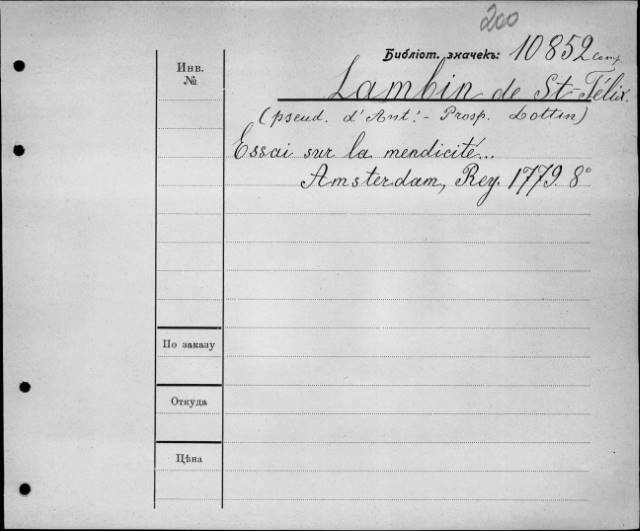 200
Библіот. значекъ: 10852 comp.
Инв.
№
Lambin de St-Félix.
(pseud. d'Ant.-Prosp. Lottin)
Essai sur la mendicité...
Amsterdam, Rey. 1779. 8°
По заказу
Откуда
Цѣна